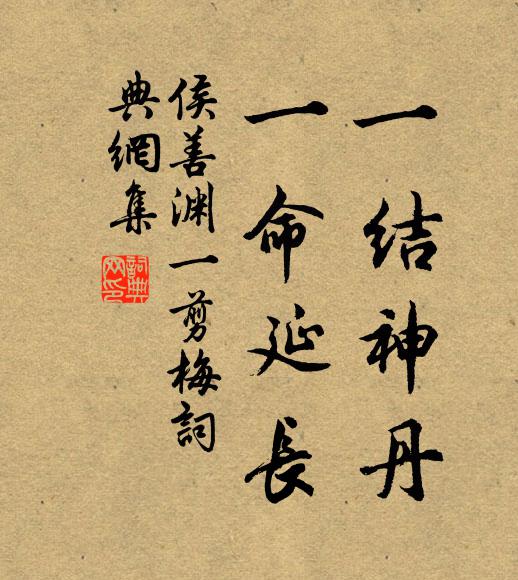 一结神丹
一命延長
侯善渊一剪梅詞
典網集
詞典网印